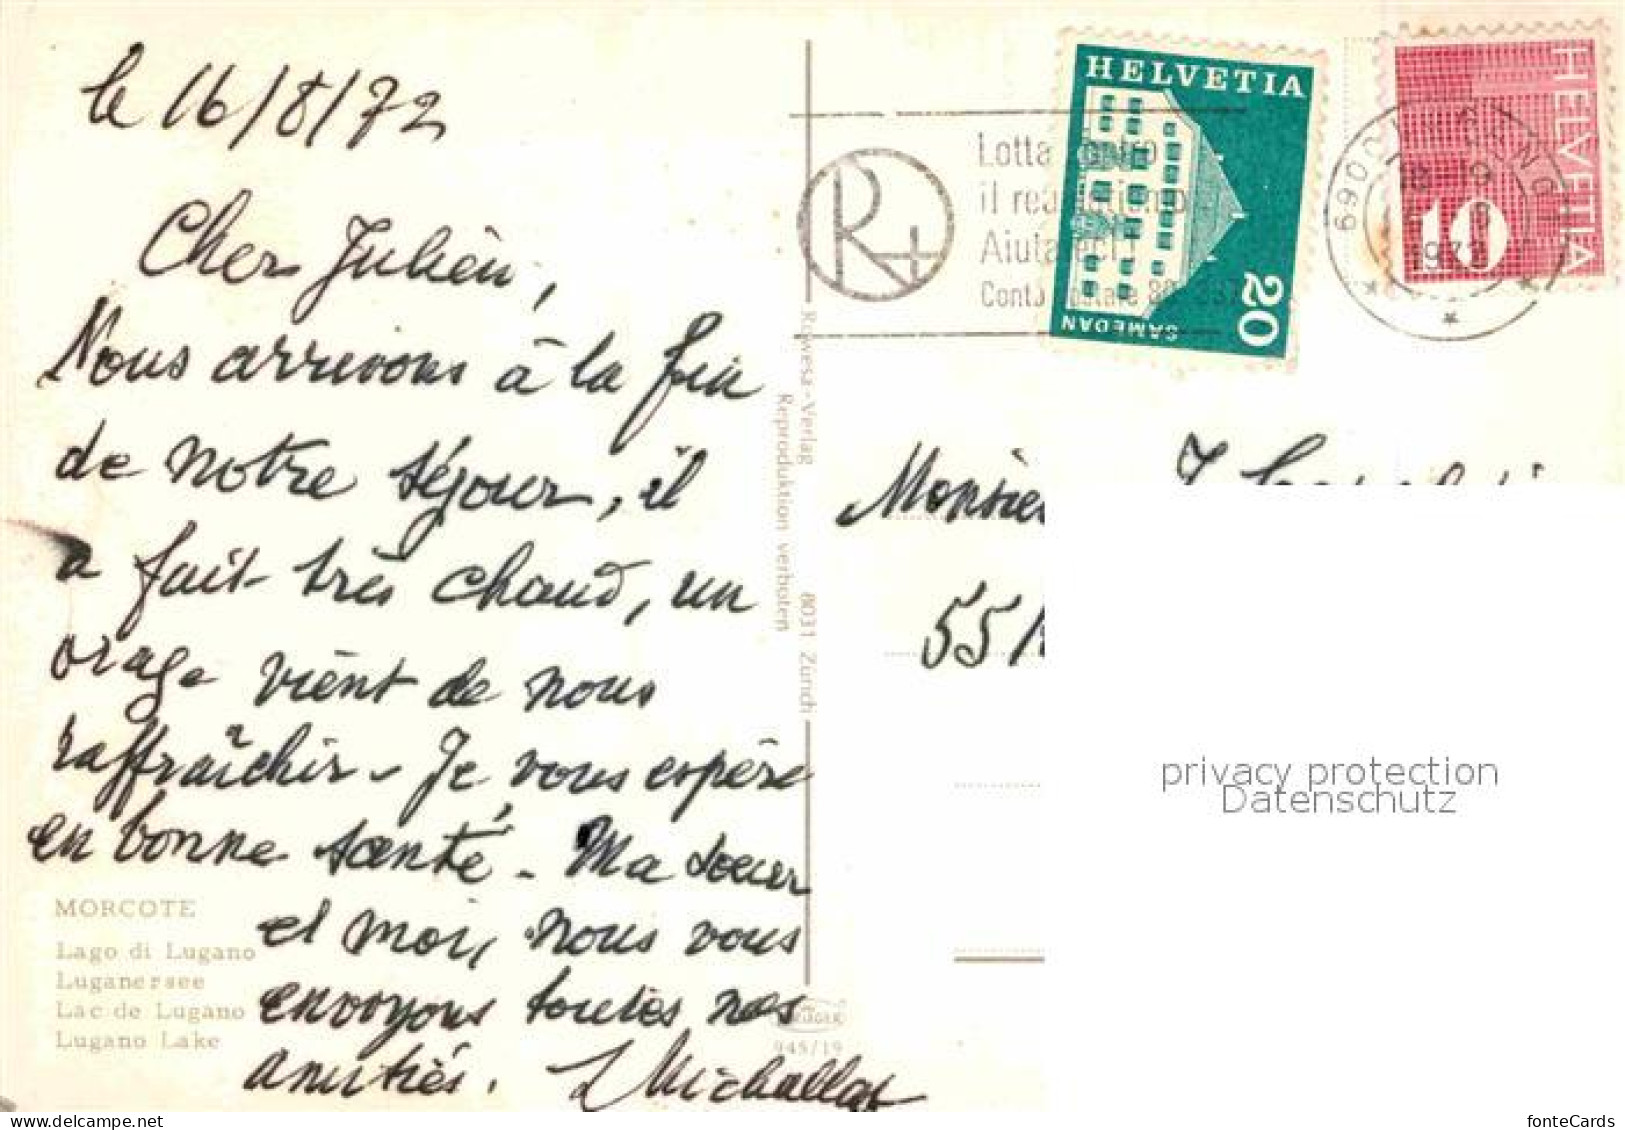 le 16/8/72
Cher Julien,
Nous arrivons à la fin
de notre séjour, il
a fait très chaud, un
orage vient de nous
raffraîchir - Je vous espère
en bonne santé. - Ma soeur
et moi, nous vous
envoyons toutes nos
amitiés.
MORCOTE
Lago di Lugano
Luganersee
Lac de Lugano
Lugano Lake
Rowesa-Verlag 8031 Zürich
Reproduktion verboten
945/19
R+
Lotta
il
Conto
HELVETIA
20
SAMEDAN
HELVETIA
10
6900
1972
55
privacy protection
Datenschutz
fonteCards